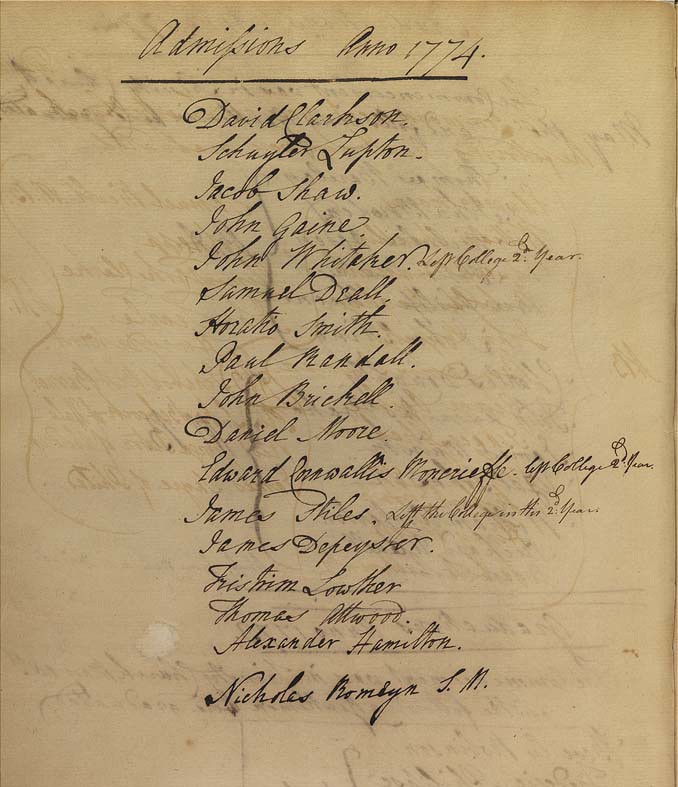 Admissions Anno 1774.
David Clarkson.
Schuyler Lupton.
Jacob Shaw.
John Gaine
John Whitaker. Left College 2d. Year.
Samuel Deall.
Horatio Smith.
Paul Randall.
John Brickell.
Daniel Moore.
Edward Cornwallis Moncrieffe. left College 2d. Year.
James Stiles. Left the College in his 2d. Year.
James Depeyster.
Tristrim Lowther
Thomas Attwood.
Alexander Hamilton.
Nicholas Romeyn S. M.